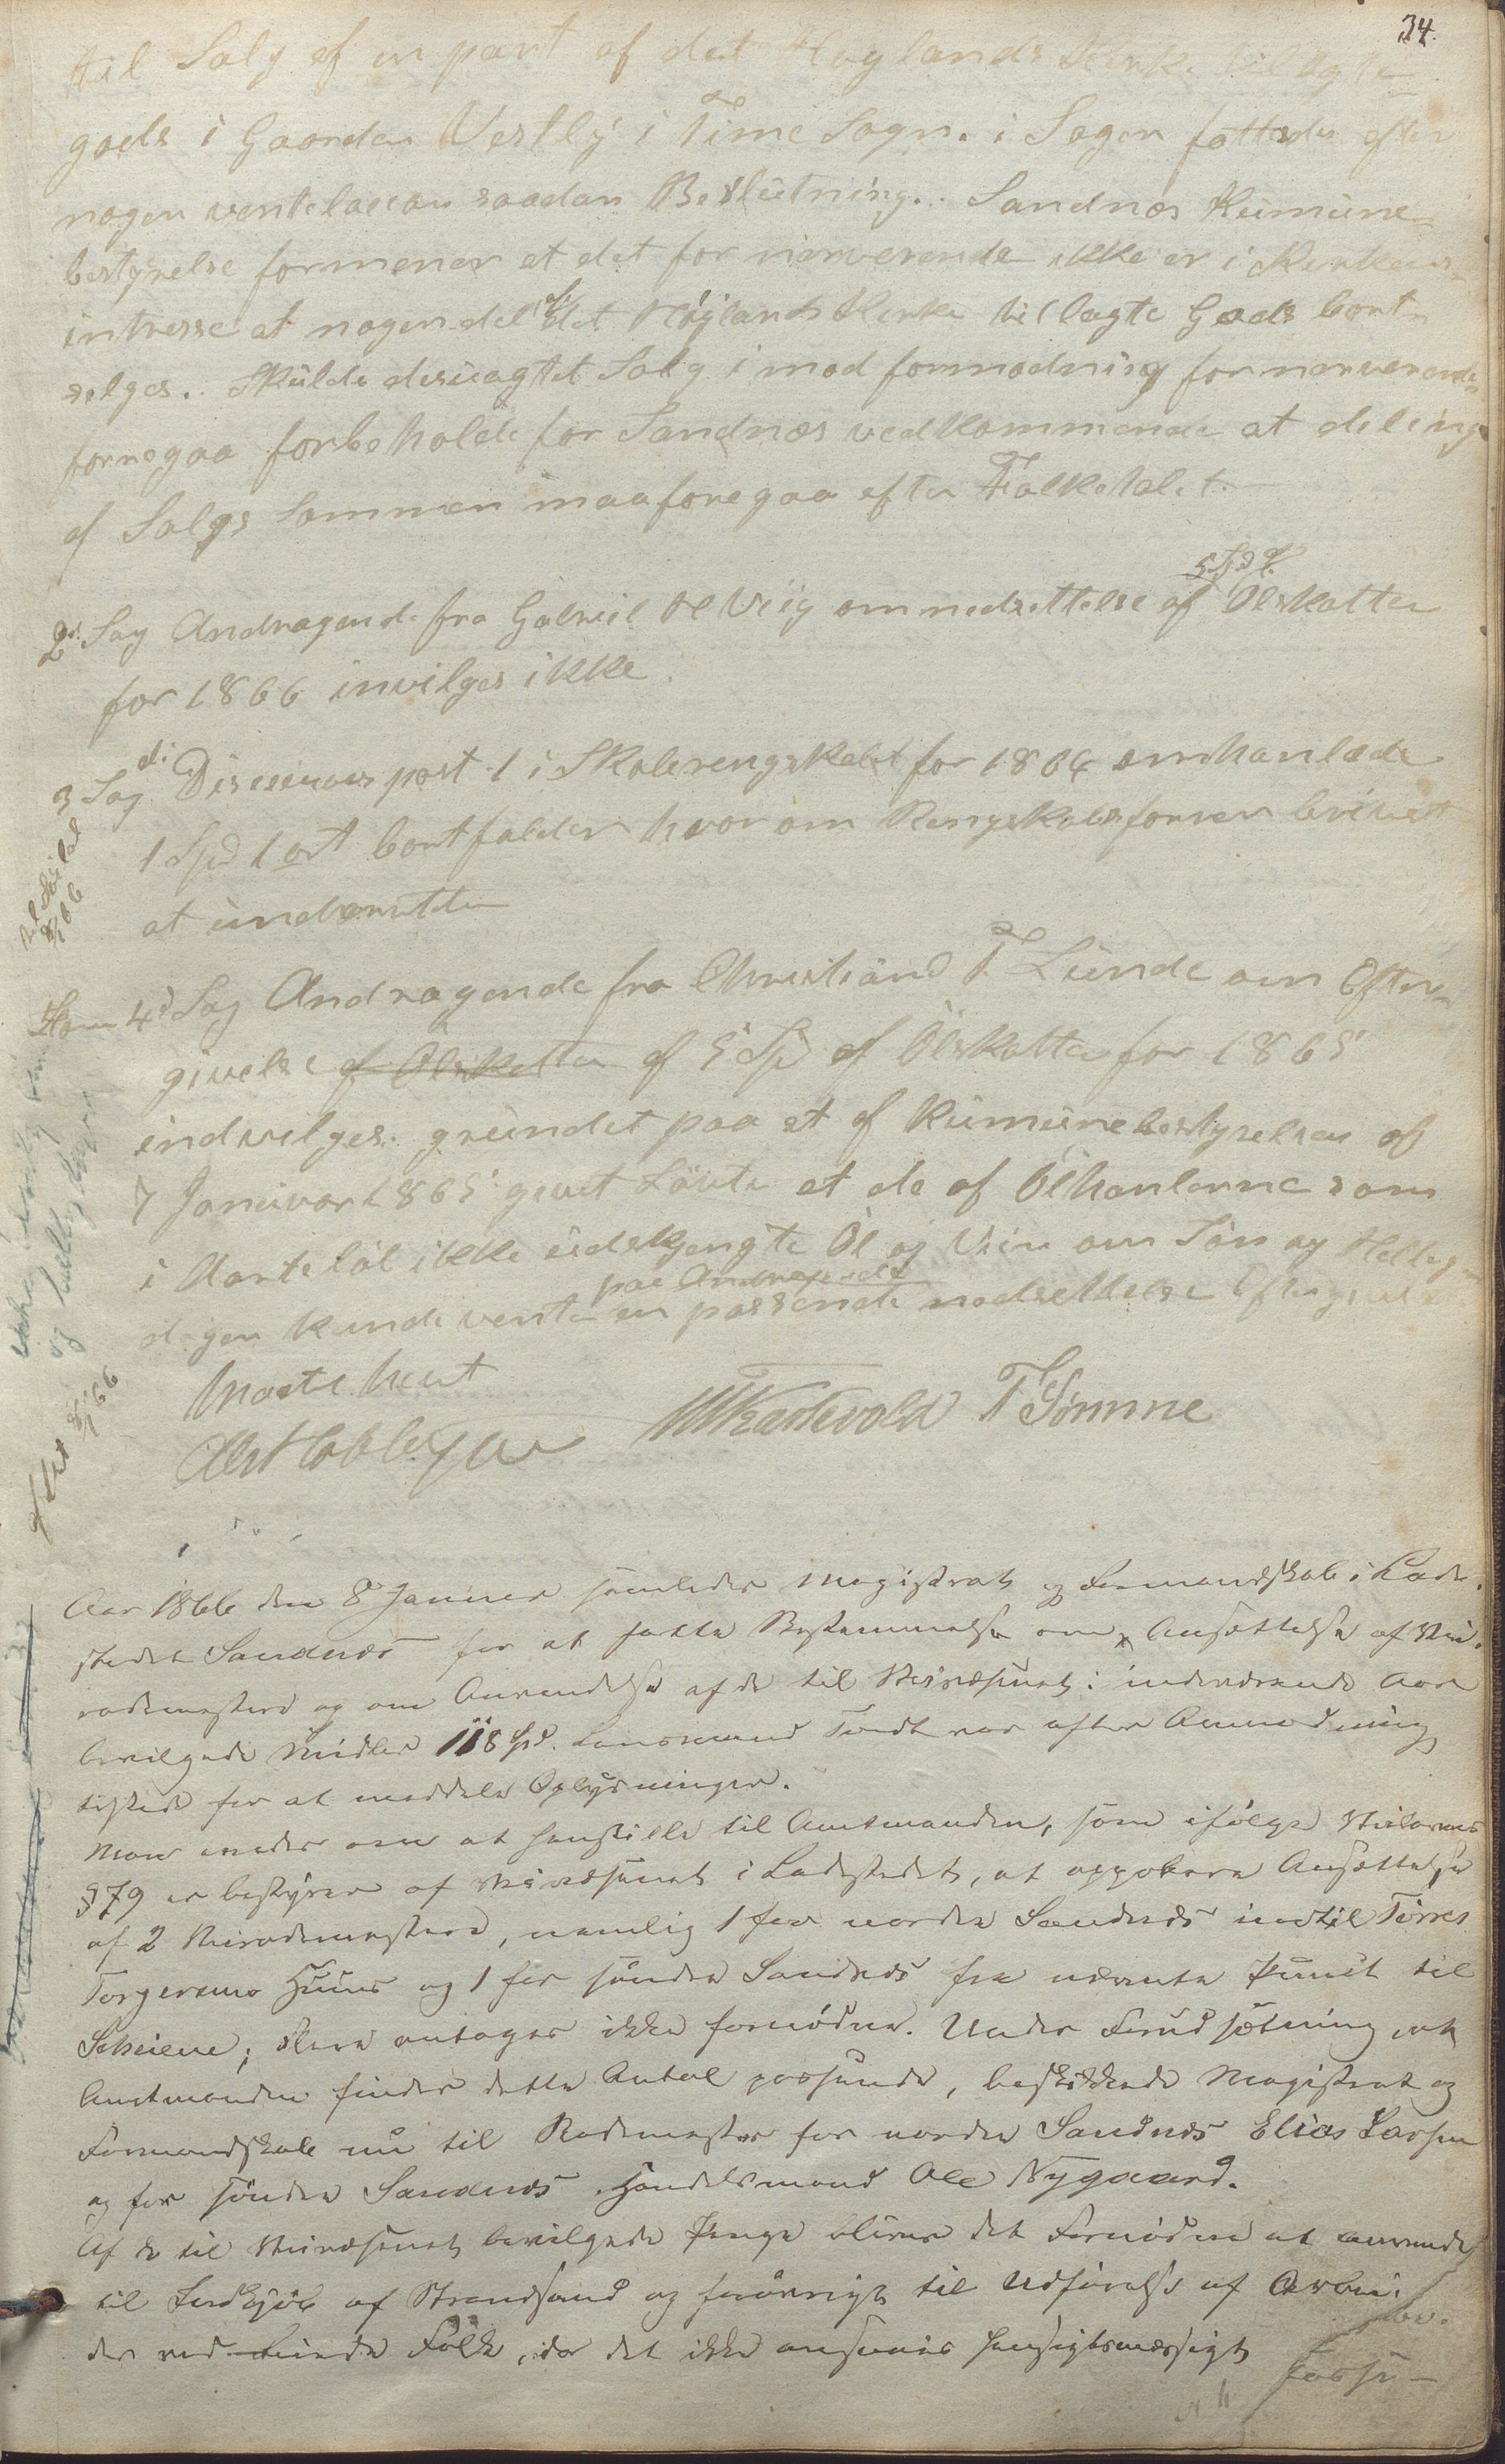 34.
til Salg af en part af det Høglands Kirke tillagte
gods i Gaarden Vestly i Time Sogn. i Sagen fattedes efter
nogen ventelacion saadan Beslutning. Sandnæs Kumune
bestyrelse formener at det for nærverende ikke er i Kirkens
intresse at nogen del af det Høglands Kirke tillagte Gods bort
selges. Skulde desuagtet Salg i mod formodning for nærverende
foregaa forbeholde for Sandnæs vedkommende at deling
af Salgs Sommen maa foregaa efter Folketalet.
2d. Sag Andragende fra Gabriel H Viig om nedsettelse af 5 Spd af Ølskatten
for 1866 invilges ikke.
3 di. Sag Dicisions post 1 i Skolerengskabet for 1864 omhanlede
1 Spd 1 ort bortfalder hvorom Rengskabsfører
at underrette
4d Sag Andragende fra Christian T Lunde om Efter-
givelse af Ølskatten af 5 Spd af Ølskatten for 1865
indvilges. grundet paa et af Kumunebestyrelsen af
7 Januvar 1865 givet Løvte at de af Ølhanlerne som
i Aaretsløb ikke udskjengte Øl og Viin om Søn og Hellig-
dagen kunde vente paa Andragende en passende nedsettelse
A H Kastevold T Sømme
Aar 1866 den 8 Januar samledes Magistrat og Formandskab i Lade-
stedet Sandnæs for at fatte Bestemmelse om Ansættelse af Vei-
rodemestere og om Anvendelse af de til Veivæsenet i indeværende Aar
bevilgede Midler 118 Spd. Lensmand Tendt var efter Anmodning
tilstede for at meddele Oplysninger.
Man enedes om at henstille til Amtmanden, som ifølge Veilovens
§ 79 er bestyrer af Veivæsenet i Ladestedet, at approbere Ansættelse
af 2 Veirodemestere, nemlig 1 for nordre Sandnæs indtil Tørres
Torgersens Huus og 1 for søndre Sandnæs fra nævnte Punct til
Scheiene; flere antages ikke fornødne. Under Forudsætning at
Amtmanden finder dette Antal passende, beskikkede Magistrat og
Formandskab nu til Rodemester for nordre Sandnæs Elias Larsen
og for søndre Sandnæs Handelsmand Ole Nygaard.
Af de til Veivæsenet bevilgede Penge bliver det Fornødne at anvende
til Indkjøb af Strandsand og forøvrigt til Udførelse af Arbei-
der ved leiede Folk, da det ikke ansees hensigtsmæssigt